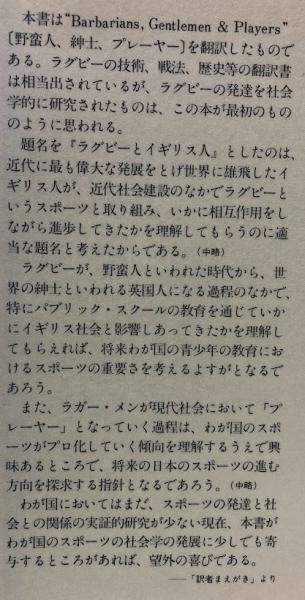 本書は“Barbarians, Gentlemen & Players”
〔野蛮人、紳士、プレーヤー〕を翻訳したもので
ある。ラグビーの技術、戦法、歴史等の翻訳書
は相当出されているが、ラグビーの発達を社会
学的に研究されたものは、この本が最初のもの
のように思われる。
題名を『ラグビーとイギリス人』としたのは、
近代に最も偉大な発展をとげ世界に雄飛したイ
ギリス人が、近代社会建設のなかでラグビーと
いうスポーツと取り組み、いかに相互作用をし
ながら進歩してきたかを理解してもらうのに適
当な題名と考えたからである。（中略）
ラグビーが、野蛮人といわれた時代から、世
界の紳士といわれる英国人になる過程のなかで、
特にパブリック・スクールの教育を通じていか
にイギリス社会と影響しあってきたかを理解し
てもらえれば、将来わが国の青少年の教育にお
けるスポーツの重要さを考えるよすがとなるで
あろう。
また、ラガー・メンが現代社会において「プ
レーヤー」となっていく過程は、わが国のスポ
ーツがプロ化していく傾向を理解するうえで興
味あるところで、将来の日本のスポーツの進む
方向を探求する指針となるであろう。（中略）
わが国においてはまだ、スポーツの発達と社
会との関係の実証的研究が少ない現在、本書が
わが国のスポーツの社会学の発展に少しでも寄
与するところがあれば、望外の喜びである。
──「訳者まえがき」より